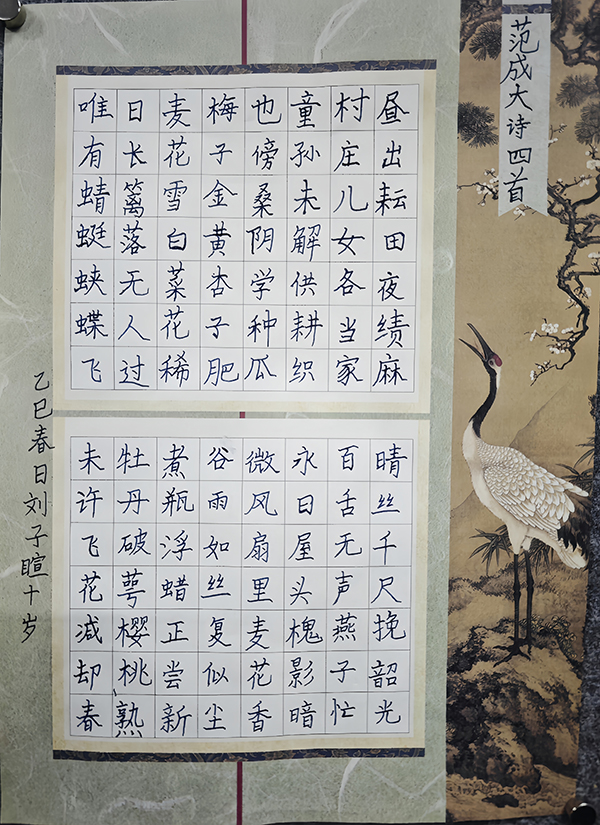 范成大诗四首
昼出耘田夜绩麻
村庄儿女各当家
童孙未解供耕织
也傍桑阴学种瓜
梅子金黄杏子肥
麦花雪白菜花稀
日长篱落无人过
唯有蜻蜓蛱蝶飞
晴丝千尺挽韶光
百舌无声燕子忙
永日屋头槐影暗
微风扇里麦花香
谷雨如丝复似尘
煮瓶浮蜡正尝新
牡丹破萼樱桃熟
未许飞花减却春
乙巳春日刘子暄十岁